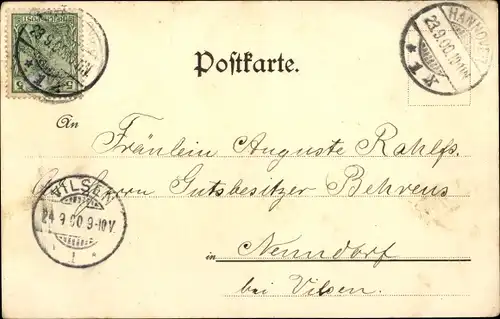 Postkarte.
HANNOVER
23.9.00.10-11N
* K 1. *
An
Fräulein Auguste Rahlfs.
Herrn Gutsbesitzer Behrens
in Nenndorf
bei Vilsen.
VILSEN
24.9.00 9-10V.
* 1 *
REICHSPOST
5 5